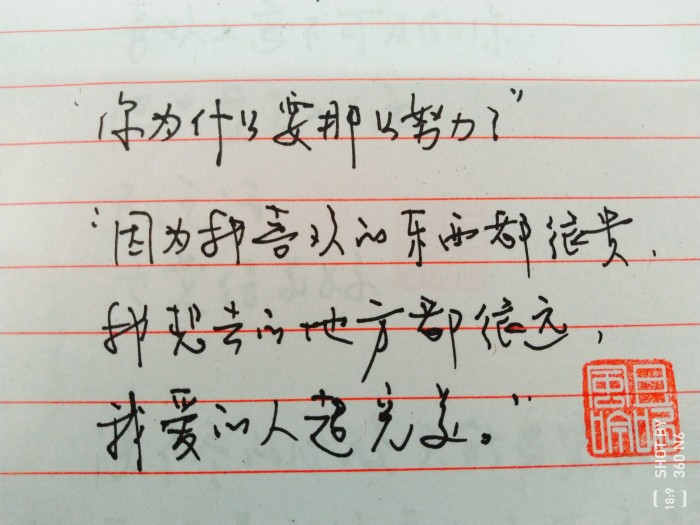 “你为什么要那么努力？”
“因为我喜欢的东西都很贵，
我想去的地方都很远，
我爱的人超完美。”
SHOT BY
360 N6
18:9